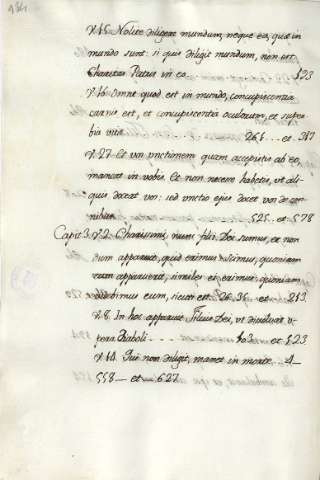 ℣.15. Nolite diligere mundum, neque ea, quæ in
mundo sunt: si quis diligit mundum, non est
Charitas Patris in eo 123
℣.16. Omne quod est in mundo, concupiscentia
carnis est, et concupiscentia oculorum, et super
bia vitæ 261 et 317
℣.27. Et vos unctionem quam accepistis ab eo,
maneat in vobis. Et non necesse habetis, ut ali-
quis doceat vos: sed unctio ejus docet vos de om
nibus 525. et 578
Capit. 3. ℣.2. Charissimi, nunc filii Dei sumus, et non
dum apparuit, quid erimus. Scimus, quoniam
cum apparuerit, similes ei erimus: quoniam
videbimus eum, sicuti est. 26. 36. et 213.
℣.8. In hoc apparuit Filius Dei, ut dissolvat o-
pera Diaboli 103 et 523
℣.14. Qui non diligit, manet in morte 4_
558_ et 627.